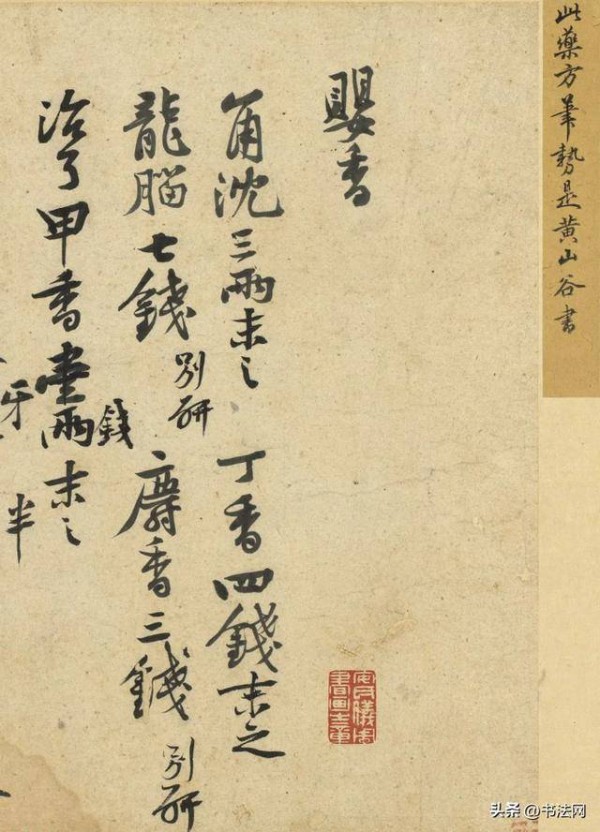 此藥方筆勢是黄山谷書
嬰香
角沈三兩末之 丁香四錢末之
龍腦七錢別研 麝香三錢別研
治了甲香壹兩末之
錢
牙
半
安氏儀周書畫之章
头条 @书法网